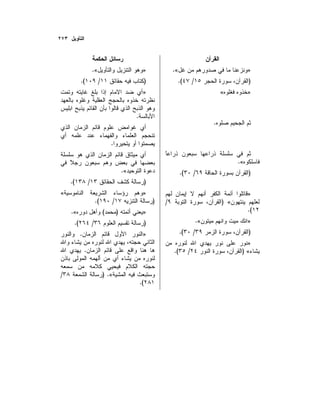 التأويل ٢٧٣
القرآن
«ونزعنا ما في صدورهم من غل».
(القرآن، سورة الحجر ١٥/ ٤٧).
«خذوه فغلوه»
ثم الجحيم صلوه.
ثم في سلسلة ذراعها سبعون ذراعاً
فاسلكوه».
(القرآن سورة الحاقة ٦٩/ ٣٠).
«قاتلوا أئمة الكفر أنهم لا ايمان لهم
لعلهم ينتهون» (القرآن، سورة التوبة ٩/
١٢).
«انك ميت وانهم ميتون».
(القرآن، سورة الزمر ٣٩/ ٣٠).
«نور على نور يهدي الله لنوره من
يشاء» (القرآن، سورة النور ٢٤/ ٣٥).
رسائل الحكمة
«وهو التنزيل والتأويل».
(كتاب فيه حقائق ١١/ ١٠٩).
«أي ضد الامام إذا بلغ غايته وتمت
نظرته خذوه بالحجج العقلية وغلوه بالعهد
وهو الذبح الذي قالوا بأن القائم يذبح ابليس
الأبالسة.
أي غوامض علوم قائم الزمان الذي
تتجحم العلماء والفهماء عند علمه أي
يصمتوا أو يتحيروا.
أي ميثاق قائم الزمان الذي هو سلسلة
بعضها في بعض وهم سبعون رجلاً في
دعوة التوحيد».
(رسالة كشف الحقائق ١٣/ ١٣٨).
«وهم رؤساء الشريعة الناموسية»
(رسالة التنزيه ١٧/ ١٩٠).
«يعني أمته (محمد) وأهل دوره».
(رسالة تقسيم العلوم ٣٦/ ٢١٤).
«النور الأول قائم الزمان. والنور
الثاني حجته، يهدي الله لنوره من يشاء والله
ها هنا واقع على قائم الزمان. يهدي الله
لنوره من يشاء أي من ألهمه المولى باذن
حجته الكلام فيحيي كلامه من سمعه
وستبعث فيه المشية». (رسالة الشمعة ٣٨/
٢٨١).